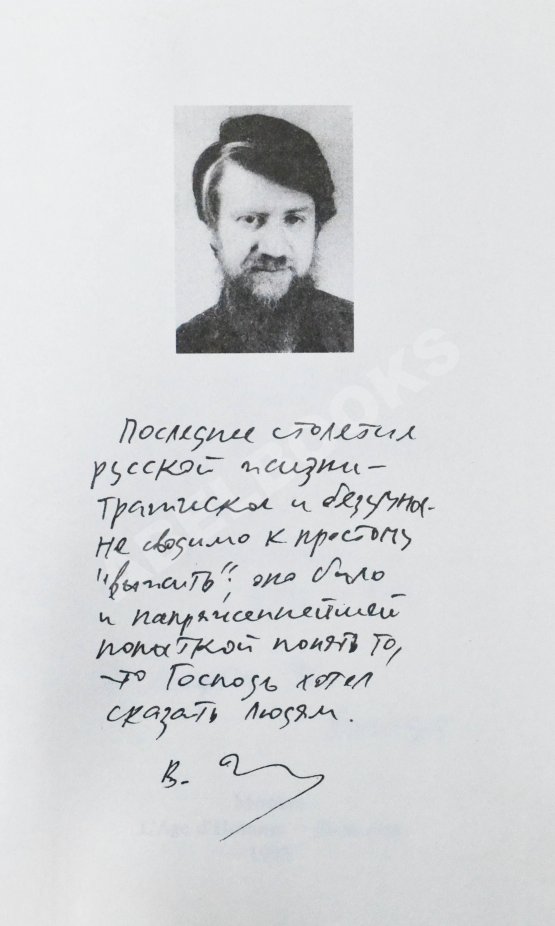 Последнее столетие
русской жизни –
трагическое и безумное
не сводимо к простому
"выжить"; оно было
и напряженнейшей
попыткой понять то,
что Господь хотел
сказать людям.
В.